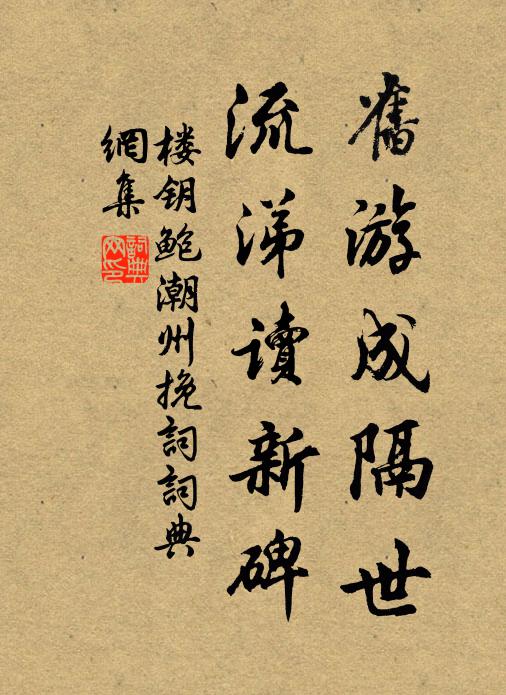 舊游成隔世
流涕讀新碑
楼钥鲍潮州挽詞詞典
網集
詞典網印